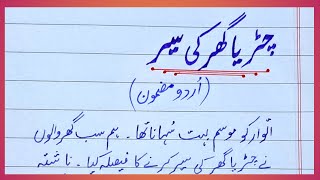 چڑیا گھر کی سیر
(اُردو مضمون)
اتوار کو موسم بہت سُہانا تھا۔ ہم سب گھر والوں
نے چڑیا گھر کی سیر کرنے کا فیصلہ کیا۔ ناشتہ